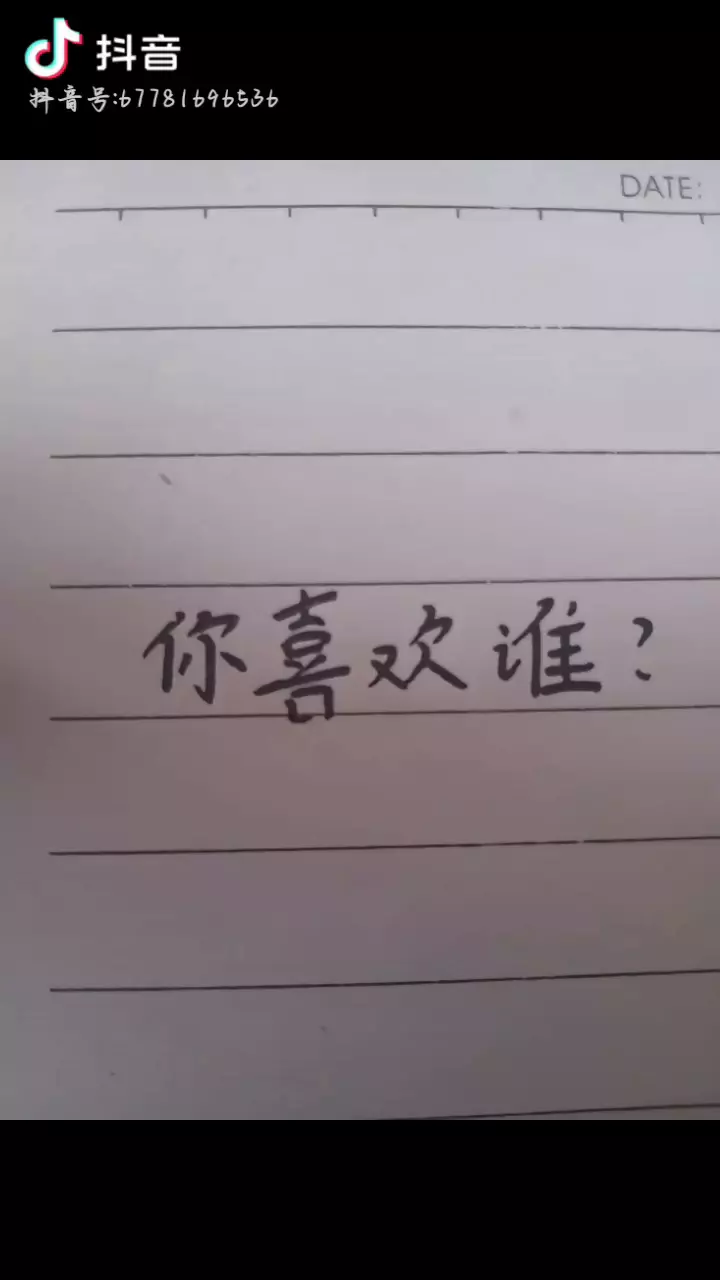 抖音
抖音号:67781696536
DATE:
你喜欢谁?